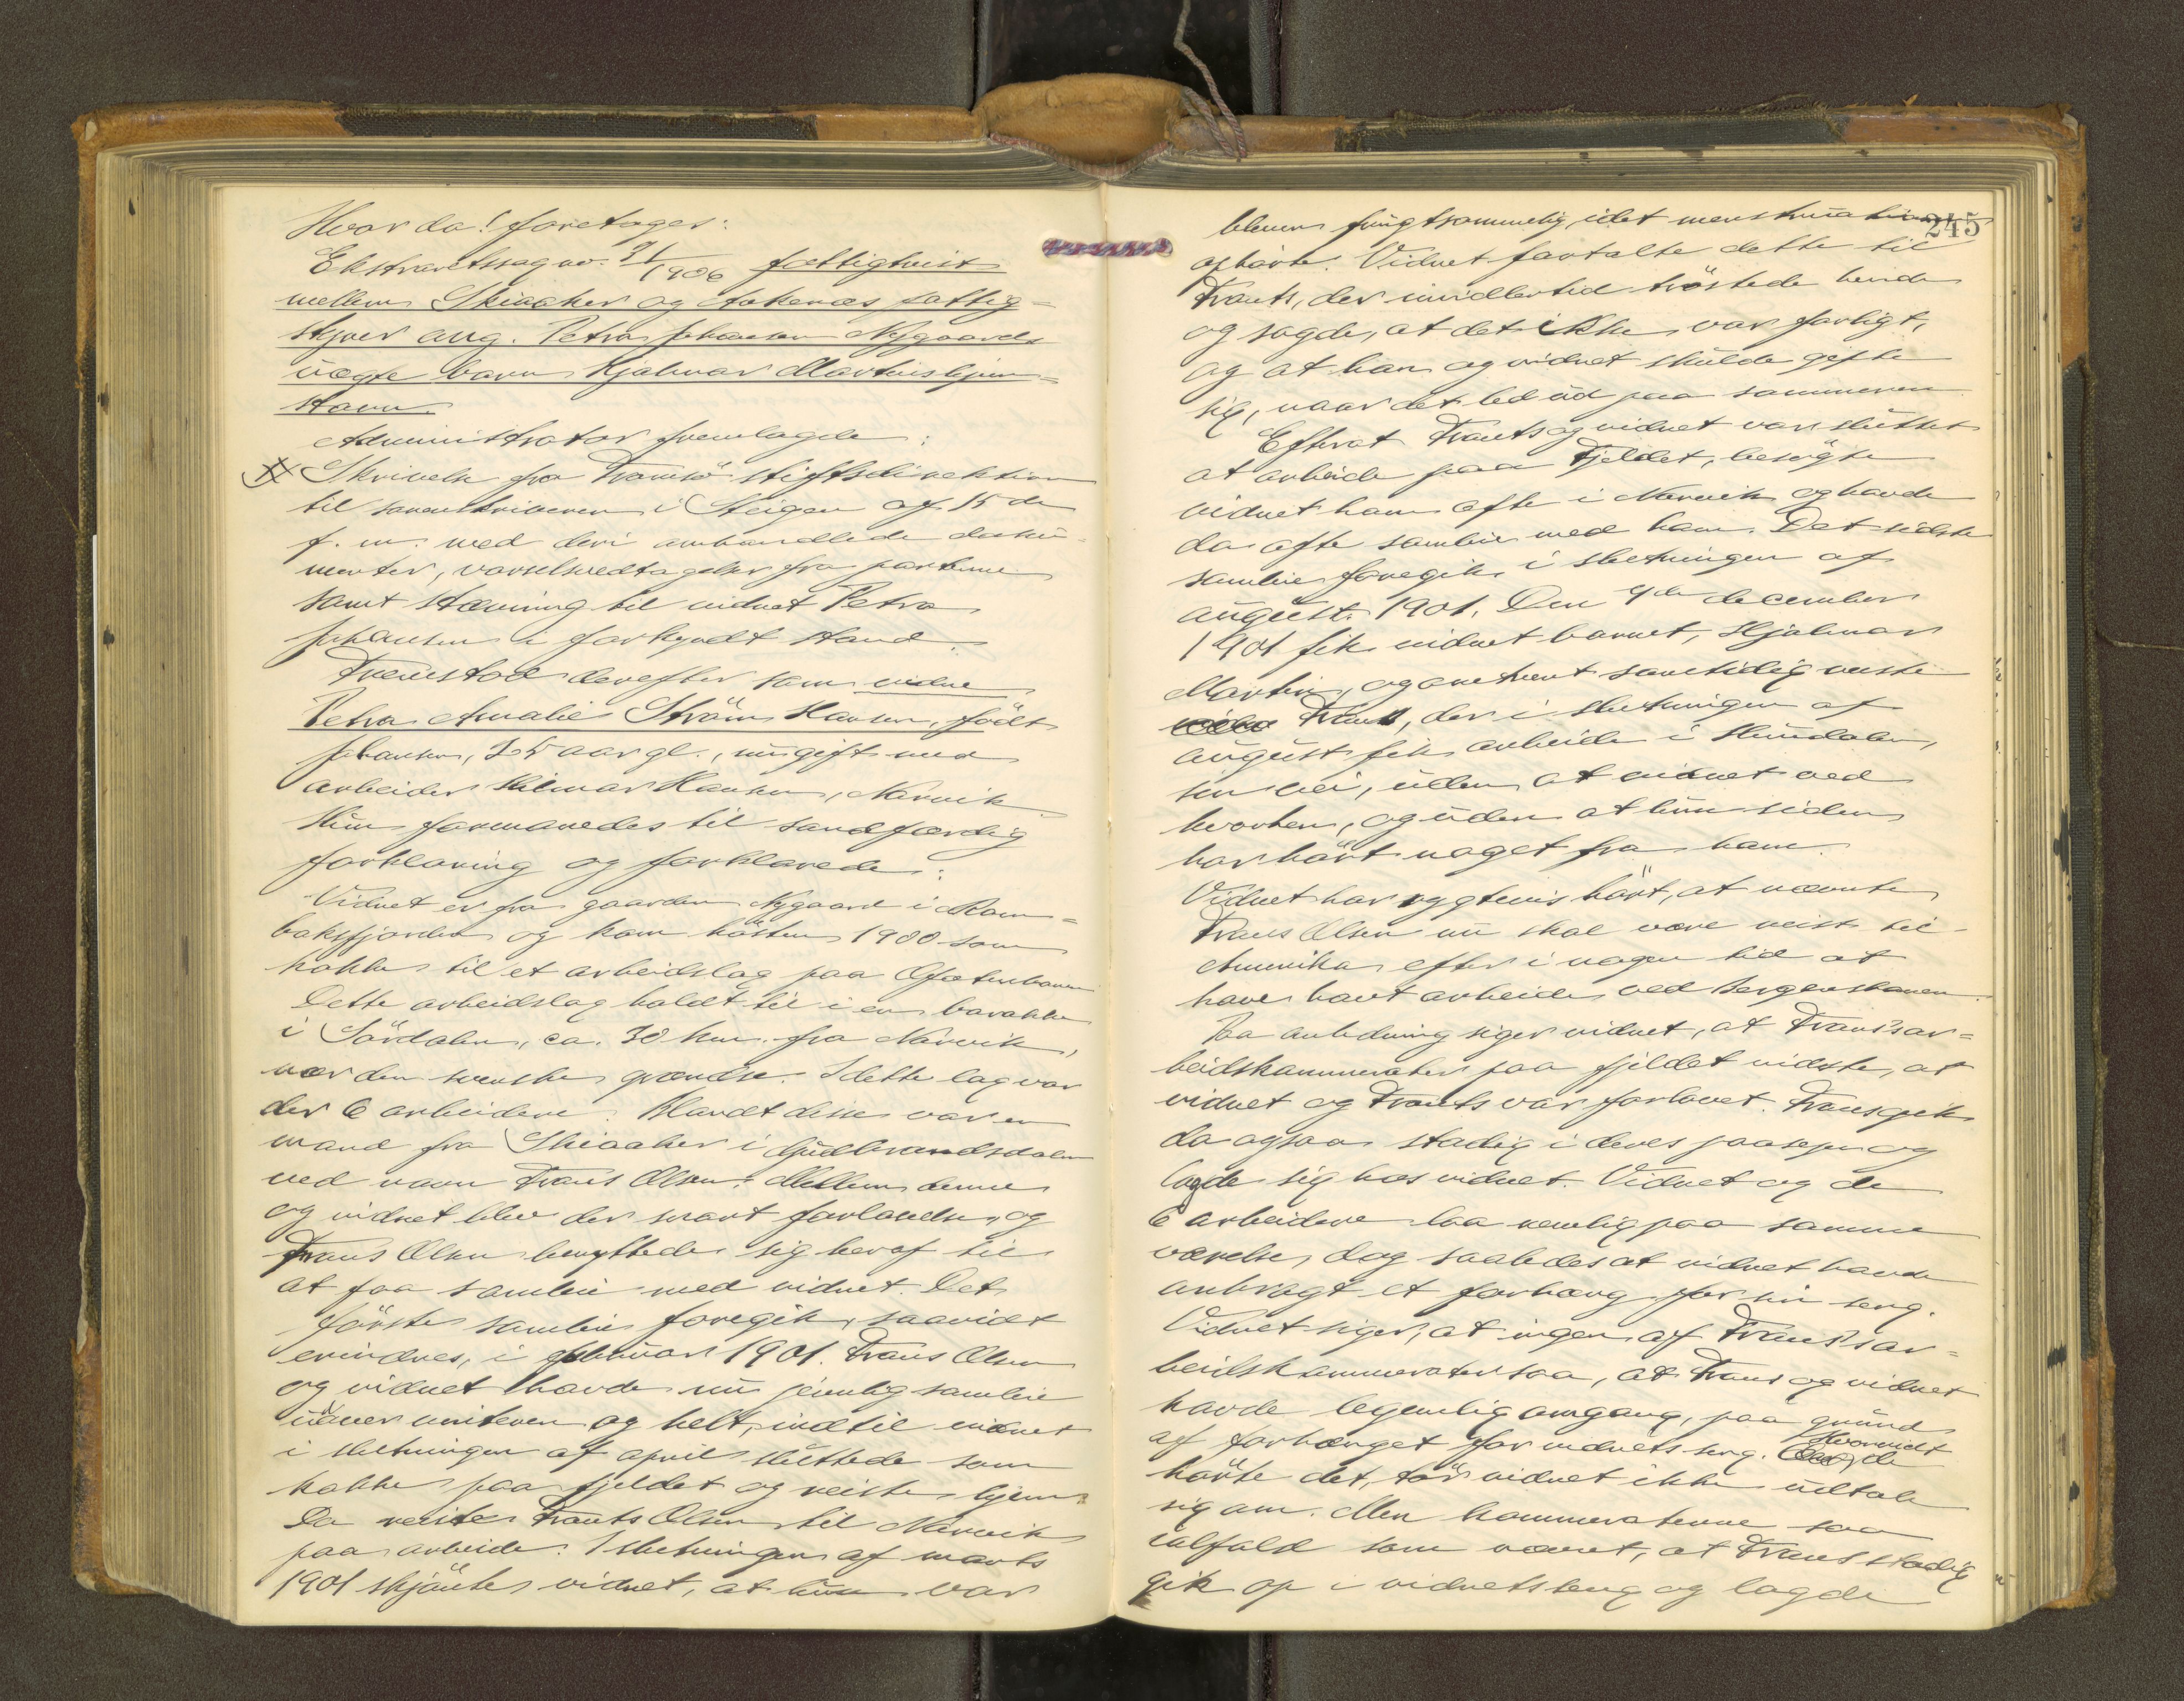 Hvorda! foretoges:
Ekstraretssag no. 71/1906 fattigtvist
mellem Skiaaker og Ankenæs fattig-
styrer ang. Petra Johansen Nygaards
uægte barn Hjalmar Martins hjem-
stavn.
Administrator fremlagde:
# Skrivelse fra Tromsö stiftsdirektion
til sorenskriveren i Steigen af 15de
f. m. med deri omhandlede doku-
menter, varselsvedtagelser fra parterne
samt stævning til vidnet Petra
Johansen i forkyndt stand.
Fremstod derefter som vidne
Petra Amalie Ström Hansen, födt
Johansen, 25 aar gl., nu gift med
arbeider Hilmar Hansen, Narvik
Hun formanedes til sandfærdig
forklaring og forklarede:
Vidnet er fra gaarden Nygaard i Rom-
baksfjorden og kom hösten 1900 som
kokke til et arbeidslag paa Ofotenbanen
Dette arbeidslag holdt til i en barakke
i Sördalen, ca. 30 km. fra Narvik,
nær den svenske grændse. I dette lag var
der 6 arbeidere. Blandt disse var en
mand fra Skiaaker i Gudbrandsdalen
ved navn Frans Olsen. Mellem denne
og vidnet blev der snart forlovelse, og
Frans Olsen benyttede sig heraf til
at faa samleie med vidnet. Det
förste samleie foregik, saavidt
erindres, i februar 1901. Frans Olsen
og vidnet havde nu jevnlig samleie
udover vinteren og helt, indtil vidnet
i slutningen af april sluttede som
kokke paa fjeldet og reiste hjem.
Da reiste Frants Olsen til Narvik
paa arbeide. I slutningen af marts
1901 skjönte vidnet, at hun var
245
bleven frugtsommelig, idet menstruationen
ophörte. Vidnet fortalte dette til
Frants, der imidlertid tröstede hende
og sagde, at det ikke var farligt,
og at han og vidnet skulde gifte
sig, naar det led ud paa sommeren.
Efterat Frants og vidnet var sluttet
at arbeide paa Fjeldet, besögte
vidnet ham ofte i Narvik og havde
da ofte samleie med ham. Det sidste
samleie foregik i slutningen af
august 1901. Den 9de december
1901 fik vidnet barnet, Hjalmar
Martin, og omtrent samtidig reiste
Frants, der i slutningen af
august fik arbeide i Hundalen,
sin vei, uden at vidnet ved
hvorhen, og uden at hun siden
har hört noget fra ham.
Vidnet har rygtevis hört, at nævnte
Frans Olsen nu skal være reist til
Amerika efter i nogen tid at
have havt arbeide ved Bergensbanen.
Paa anledning siger vidnet, at Frans's ar-
beidskammerater paa fjeldet vidste, at
vidnet og Frants var forlovet. Frans gik
da ogsaa stadig i deres paasyn og
lagde sig hos vidnet. Vidnet og de
6 arbeidere laa nemlig paa samme
værelse, dog saaledes at vidnet havde
anbragt et forhæng for sin seng.
Vidnet siger, at ingen af Frans's ar-
beidskammerater saa, at Frans og vidnet
havde legemlig omgang, paa grund
af forhænget for vidnets seng. Hvorvidt de
hörte det, tör vidnet ikke udtale
sig om. Men kammeraterne saa
ialfald som nævnt, at Frans stadig
gik op i vidnets seng og lagde